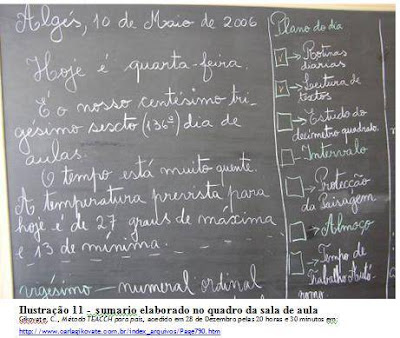 Algés, 10 de Maio de 2006
Hoje é quarta-feira.
É o nosso centésimo tri-
gésimo sexto (136º) dia de
aulas.
O tempo está muito quente.
A temperatura prevista para
hoje é de 27 graus de máxima
e 13 de mínima.
vigésimo - numeral ordinal
Plano do dia
v Rotinas
diárias
v Leitura de
textos
Estudo do
decímetro quadrado.
Intervalo
Protecção
da Paisagem
Almoço
Tempo de
Trabalho Autó-
nomo.
Ilustração 11 - sumario elaborado no quadro da sala de aula
Gikovate, C., Método TEACCH para pais, acedido em 28 de Dezembro pelas 20 horas e 30 minutos em:
http://www.carlagikovate.com.br/index_arquivos/Page790.htm